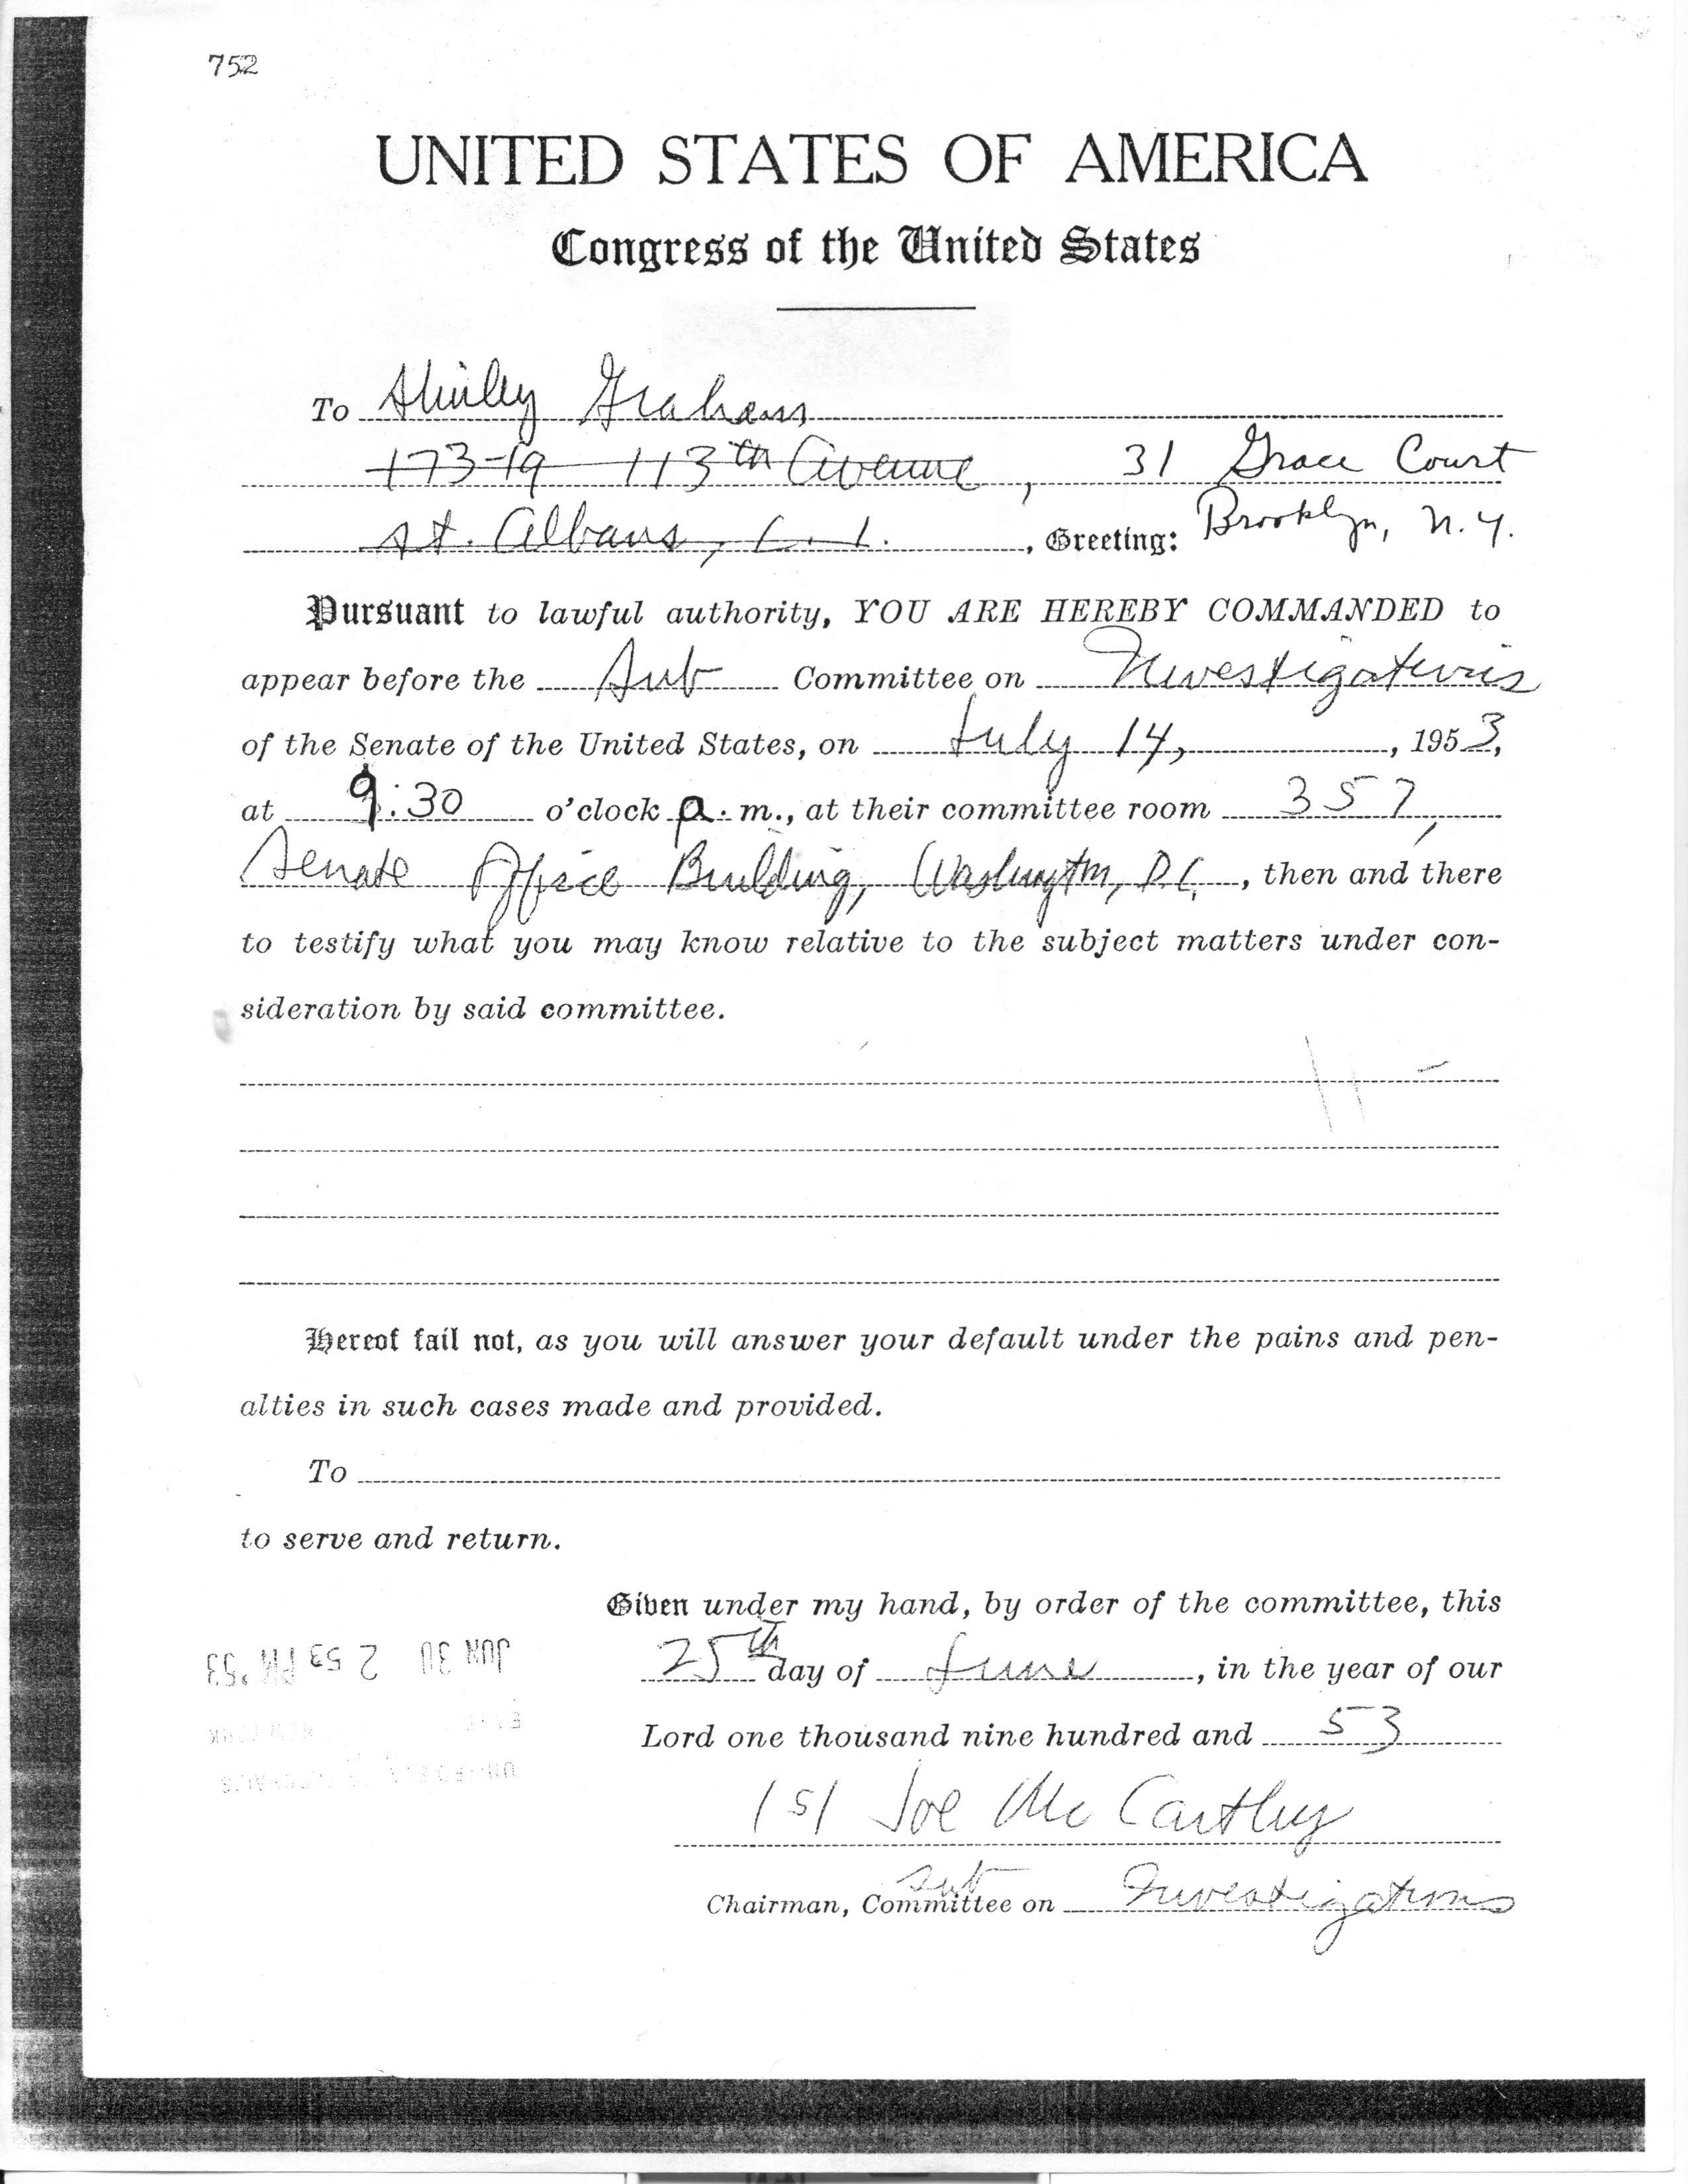 752
UNITED STATES OF AMERICA
Congress of the United States
To Shirley Graham
173-19 113th Avenue, 31 Grace Court
St. Albans, L. I. , Greeting: Brooklyn, N.Y.
Pursuant to lawful authority, YOU ARE HEREBY COMMANDED to
appear before the Sub Committee on Investigations
of the Senate of the United States, on July 14, , 1953,
at 9:30 o'clock a. m., at their committee room 357,
Senate Office Building, Washington, D.C. , then and there
to testify what you may know relative to the subject matters under con-
sideration by said committee.
Hereof fail not, as you will answer your default under the pains and pen-
alties in such cases made and provided.
To
to serve and return.
Given under my hand, by order of the committee, this
25th day of June , in the year of our
Lord one thousand nine hundred and 53
/s/ Joe McCarthy
Chairman, Sub Committee on Investigations
JUN 30 2 53 PM '53